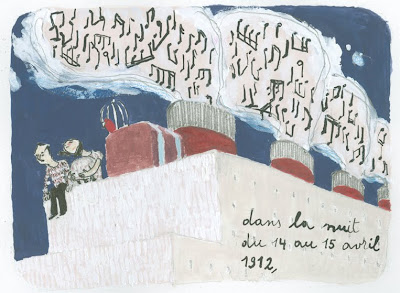 dans la nuit
du 14 au 15 avril
1912,